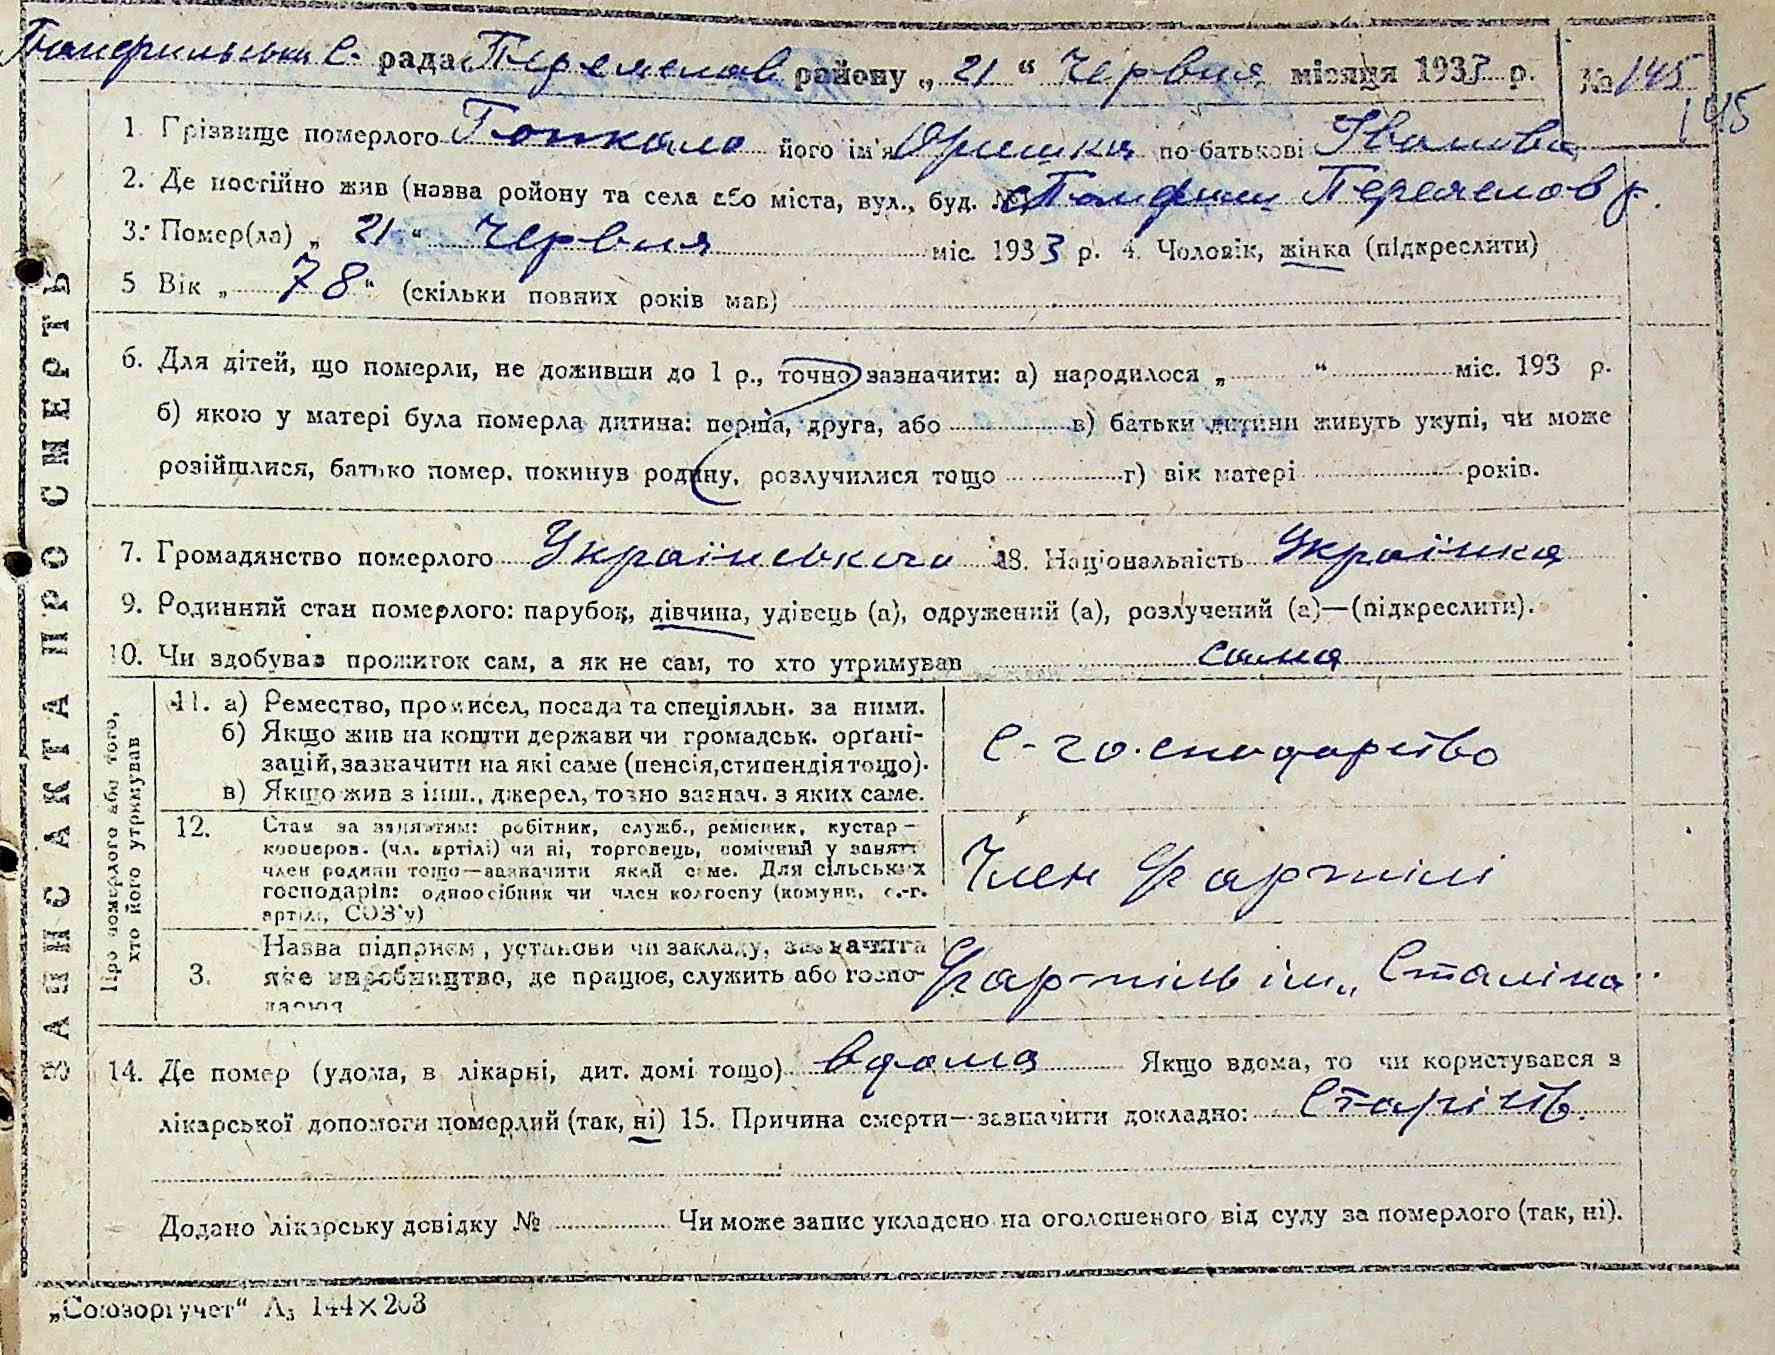 Памфильська с. рада Переяслав району „ 21 “ Червня місяця 1933 р. № 145
145
1. Прізвище померлого Гопкало його ім'я Оришка по-батькові Іванова
2. Де постійно жив (назва ройону та села або міста, вул., буд. № с Памфили Переяслов р.
3. Помер(ла) „ 21 “ Червня міс. 1933 р. 4. Чоловік, жінка (підкреслити)
5 Вік „ 78 “ (скільки повних років мав)
6. Для дітей, що померли, не доживши до 1 р., точно зазначити: а) народилося „ “ міс. 193 р.
б) якою у матері була померла дитина: перша, друга, або в) батьки дитини живуть укупі, чи може
розійшлися, батько помер, покинув родину, розлучилися тощо г) вік матері років.
7. Громадянство померлого Українського 8. Національність Українка
9. Родинний стан померлого: парубок, дівчина, удівець (а), одружений (а), розлучений (а)—(підкреслити).
10. Чи здобував прожиток сам, а як не сам, то хто утримував сама
Про померлого або того, хто його утримував
11. а) Ремество, промисел, посада та спеціяльн. за ними.
б) Якщо жив на кошти держави чи громадськ. органі-
зацій, зазначити на які саме (пенсія, стипендія тощо).
в) Якщо жив з інш., джерел, точно зазнач. з яких саме.
С-господарство
12. Стан за заняттям: робітник, служб., ремісник, кустар—
кооперов. (чл. артілі) чи ні, торговець, помічний у занятті
член родини тощо—зазначити який саме. Для сільських
господарів: одноосібник чи член колгоспу (комуни, с.-г.
артілі, СОЗ'у)
Член артілі
3. Назва підприєм, установи чи закладу, зазначита
яке виробництво, де працює, служить або госпо-
дарює
артіль ім„ Сталіна
14. Де помер (удома, в лікарні, дит. домі тощо) вдома Якщо вдома, то чи користувався з
лікарської допомоги померлий (так, ні) 15. Причина смерти—зазначити докладно: Старість.
Додано лікарську довідку № Чи може запис укладено на оголошеного від суду за померлого (так, ні).
ЗАПИС АКТА ПРО СМЕРТЬ
„Союзоргучет“ А₃ 144×203